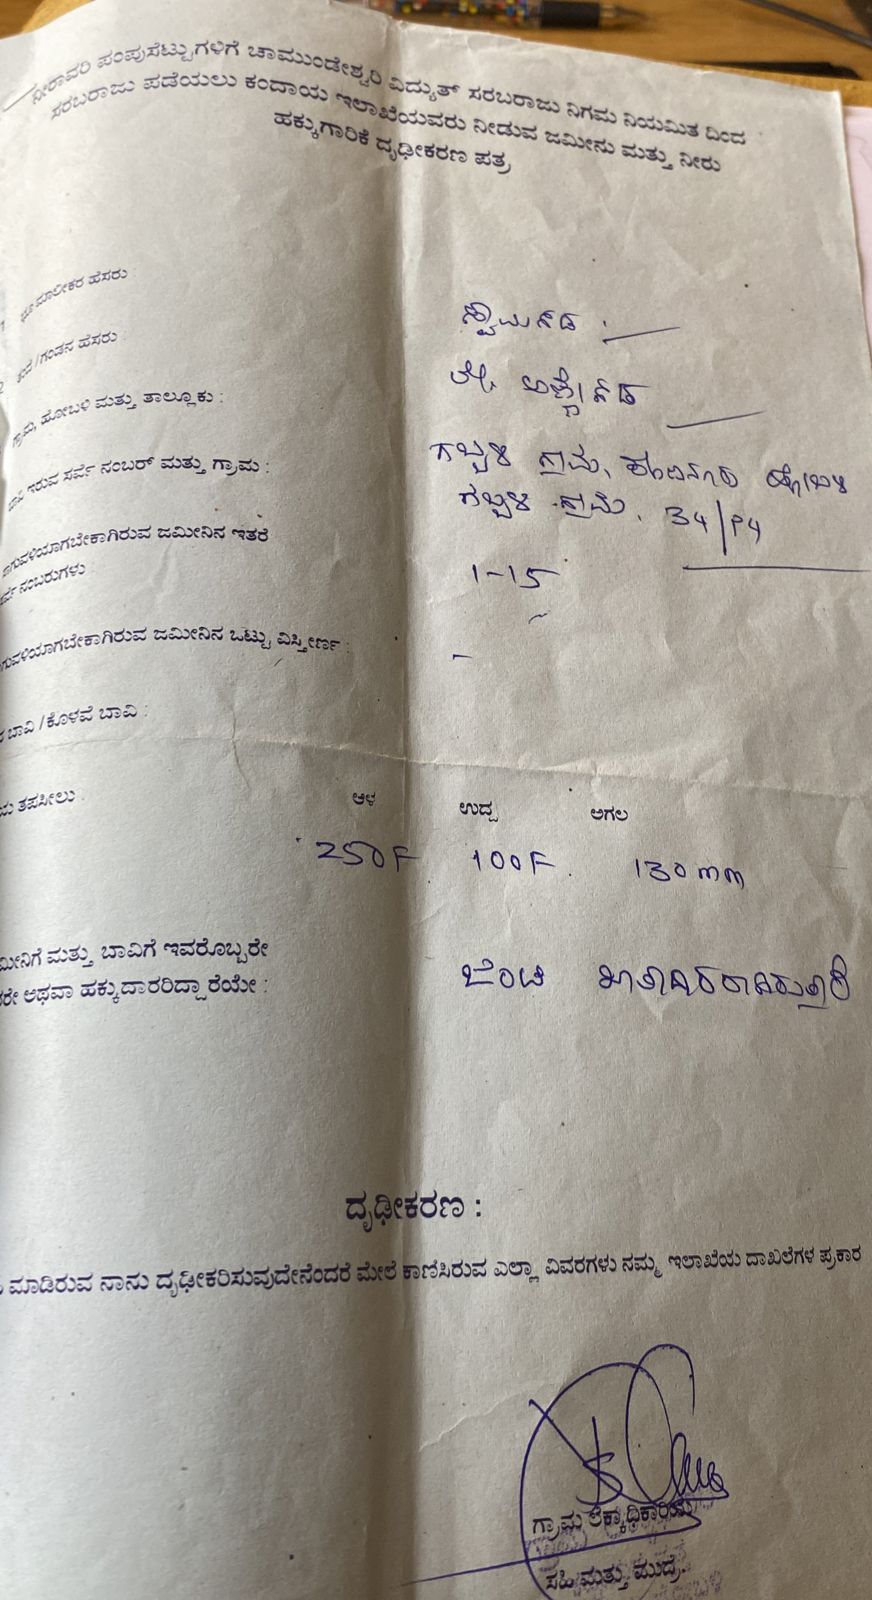 ನೀರಾವರಿ ಪಂಪುಸೆಟ್ಟುಗಳಿಗೆ ಚಾಮುಂಡೇಶ್ವರಿ ವಿದ್ಯುತ್ ಸರಬರಾಜು ನಿಗಮ ನಿಯಮಿತ ದಿಂದ
ಸರಬರಾಜು ಪಡೆಯಲು ಕಂದಾಯ ಇಲಾಖೆಯವರು ನೀಡುವ ಜಮೀನು ಮತ್ತು ನೀರು
ಹಕ್ಕುಗಾರಿಕೆ ದೃಢೀಕರಣ ಪತ್ರ
ಭೂ ಮಾಲೀಕರ ಹೆಸರು :
ತಂದೆ/ಗಂಡನ ಹೆಸರು
ಗ್ರಾಮ, ಹೋಬಳಿ ಮತ್ತು ತಾಲ್ಲೂಕು : ಗಬ್ಬಳಿ ಗ್ರಾಮ,
ಬಾವಿ ಇರುವ ಸರ್ವೆ ನಂಬರ್ ಮತ್ತು ಗ್ರಾಮ : ಗಬ್ಬಳಿ ಗ್ರಾಮ. 34/P4
ಸಾಗುವಳಿಯಾಗಬೇಕಾಗಿರುವ ಜಮೀನಿನ ಇತರೆ 1-15
ಸರ್ವೆ ನಂಬರುಗಳು
ಗುವಳಿಯಾಗಬೇಕಾಗಿರುವ ಜಮೀನಿನ ಒಟ್ಟು ವಿಸ್ತೀರ್ಣ : -
ಬಾವಿ / ಕೊಳವೆ ಬಾವಿ :
ಯ ತಪಸೀಲು ಆಳ ಉದ್ದ ಅಗಲ
250F 100F. 130 mm
ಮೀನಿಗೆ ಮತ್ತು ಬಾವಿಗೆ ಇವರೊಬ್ಬರೇ
ರೇ ಅಥವಾ ಹಕ್ಕುದಾರರಿದ್ದಾರೆಯೇ : ಜಂಟಿ ಖಾತಾದಾರರಾಗಿರುತ್ತಾರೆ
ದೃಢೀಕರಣ :
ಮಾಡಿರುವ ನಾನು ದೃಢೀಕರಿಸುವುದೇನೆಂದರೆ ಮೇಲೆ ಕಾಣಿಸಿರುವ ಎಲ್ಲಾ ವಿವರಗಳು ನಮ್ಮ ಇಲಾಖೆಯ ದಾಖಲೆಗಳ ಪ್ರಕಾರ
ಗ್ರಾಮ ಲೆಕ್ಕಾಧಿಕಾರಿಯ
ಸಹಿ ಮತ್ತು ಮುದ್ರೆ.